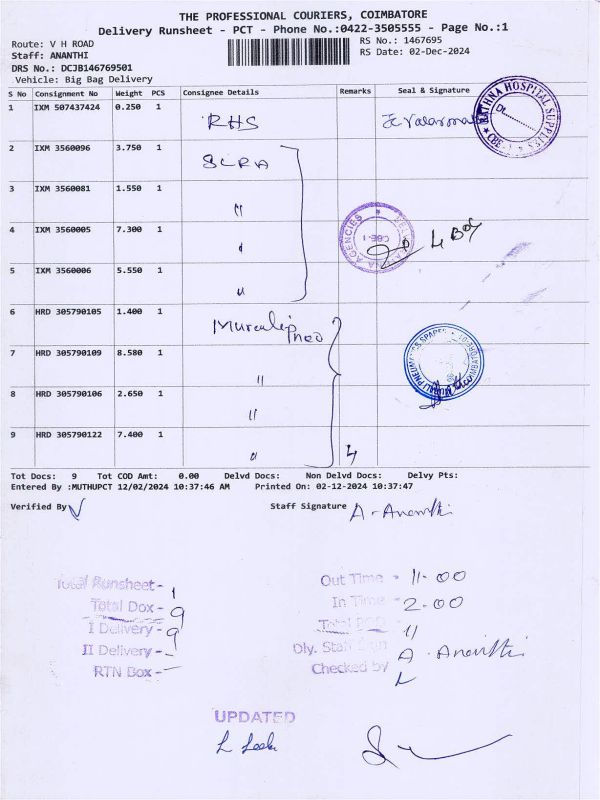 THE PROFESSIONAL COURIERS, COIMBATORE
Delivery Runsheet - PCT - Phone No.:0422-3505555 - Page No.:1
Route: V H ROAD
RS No.: 1467695
Staff: ANANTHI
RS Date: 02-Dec-2024
DRS No.: DCJB146769501
Vehicle: Big Bag Delivery
S No Consignment No Weight PCS Consignee Details Remarks Seal & Signature
1 IXM 507437424 0.250 1 RHS
2 IXM 3560096 3.750 1
3 IXM 3560081 1.550 1 "
4 IXM 3560005 7.300 1
5 IXM 3560006 5.550 1 "
6 HRD 305790105 1.400 1
7 HRD 305790109 8.580 1 "
8 HRD 305790106 2.650 1 "
9 HRD 305790122 7.400 1 " 4
HOSPITAL SUPPLIES
AGENCIES
CBE-1
4 Box
Tot Docs: 9 Tot COD Amt: 0.00 Delvd Docs: Non Delvd Docs: Delvy Pts:
Entered By :MUTHUPCT 12/02/2024 10:37:46 AM Printed On: 02-12-2024 10:37:47
Verified By
Staff Signature A-Ananthi
Total Runsheet - 1
Total Dox - 9
I Delivery - 9
II Delivery -
RTN Box -
Out Time - 11-00
In Time - 2-00
Dly. Staff Sign A. Ananthi
Checked by
UPDATED